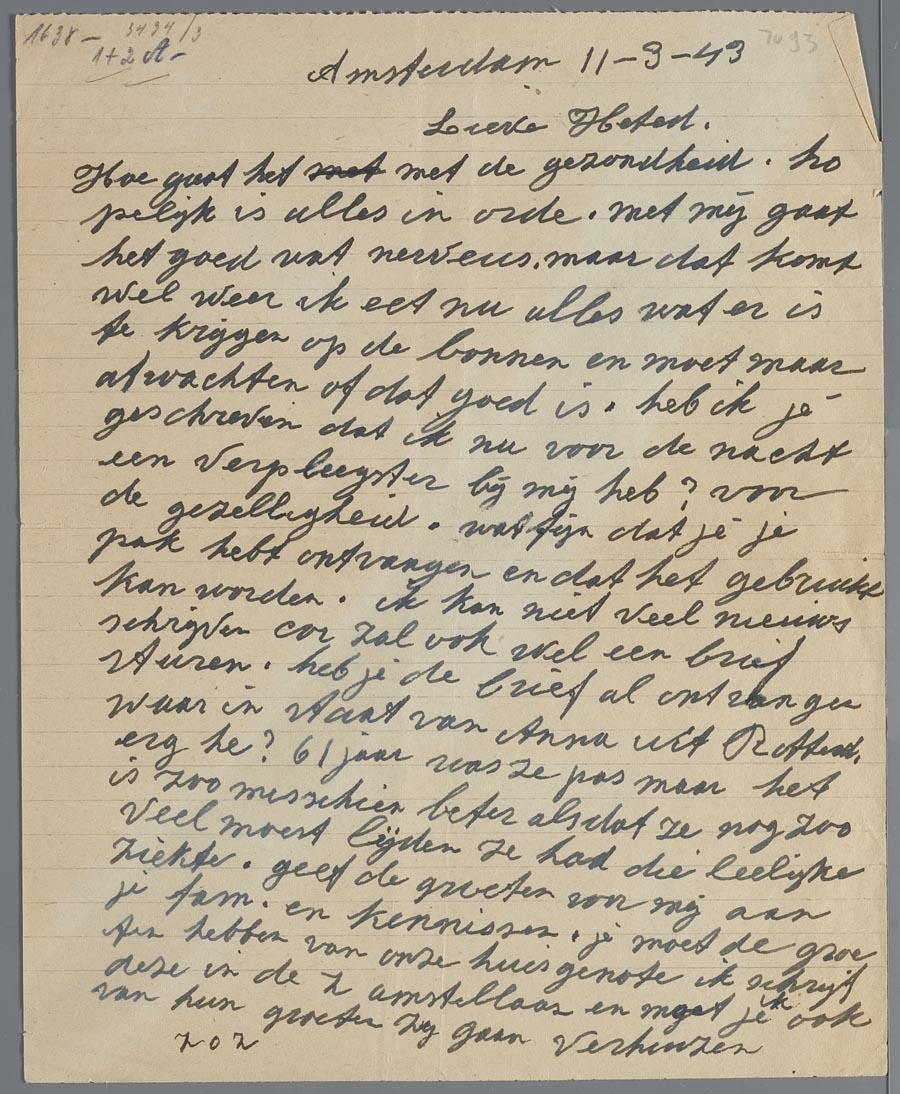 1638 - 3494/3
1+2 A-
7093
Amsterdam 11-3-43
Lieve Heted.
Hoe gaat het met met de gezondheid. ho
pelijk is alles in orde. met mij gaat
het goed wat nerveus. maar dat komt
wel weer ik eet nu alles wat er is
te krijgen op de bonnen en moet maar
afwachten of dat goed is. heb ik je
geschreven dat ik nu voor de nacht
een verpleegster bij mij heb? voor
de gezelligheid. wat fijn dat je je
pak hebt ontvangen en dat het gebruikt
kan worden. ik kan niet veel nieuws
schrijven cor zal ook wel een brief
sturen. heb je de brief al ontvangen
waar in staat van Anna uit Rotterd.
erg he? 61 jaar was ze pas maar het
is zoo misschien beter als dat ze nog zoo
veel moest lijden ze had die leelijke
ziekte. geef de groeten voor mij aan
je fam. en kennissen. je moet de groe
ten hebben van onze huisgenote ik schrijf
deze in de Z amstellaan en moet je ook
van hun groeten zij gaan verhuizen
z o z